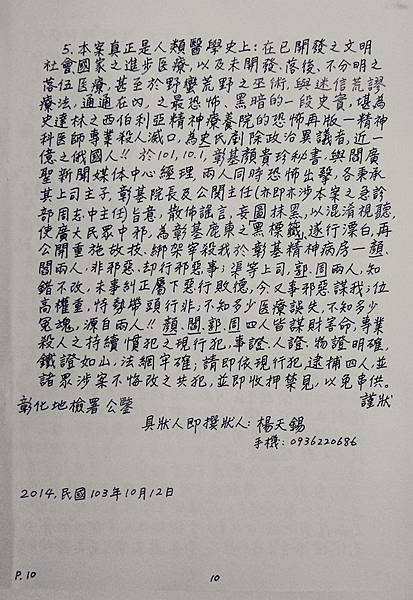 5.本案真正是人類醫學史上:在已開發之文明
社會國家之進步医療,以及未開發、落後、不分明之
落伍医療,甚至於野蛮荒野之巫術,與迷信荒謬
療法,通通在內,之最恐怖、黑暗的一段史實,堪為
史達林之西伯利亞精神療養院的恐怖再版—精神
科医師專業殺人滅口,為史氏剷除政治異議者,近一
億之俄國人!! 於101.10.1,彰基顏貴珍秘書,與閻廣
聖新聞媒体中心經理 兩人同時恐怖出擊,各秉承
其上司主子,彰基院長及公關主任(亦即亦涉本案之急診
部周志中主任)旨意,散佈謠言,妄圖抹黑,以混淆視聽,
使廣大民眾中邪,為彰基鹿東之黑標籤,遂行漂白,再
公開重施故技、綁架宰殺我於彰基精神病房—顏、
閻兩人,非邪惡,却行邪惡事;渠等上司,郭、周兩人,知
錯不改,未事糾正屬下惡行敗德,今又事邪惡謀我;位
高權重,恃勢帶頭行非;不知多少医療誤失,不知多少
冤魂,源自兩人!! 顏、閻、郭、周四人皆謀財害命,專業
殺人之持續慣犯之現行犯,事證、人證、物證明確,
鐵證如山,法網牢確;請即依現行犯,逮捕四人,並
諸眾涉案不悔改之共犯,並即收押禁見,以免串供。
謹狀
彰化地檢署公鑒
具狀人即撰狀人:楊天錫
手機:0936220686
2014.民國103年10月12日
P.10
10